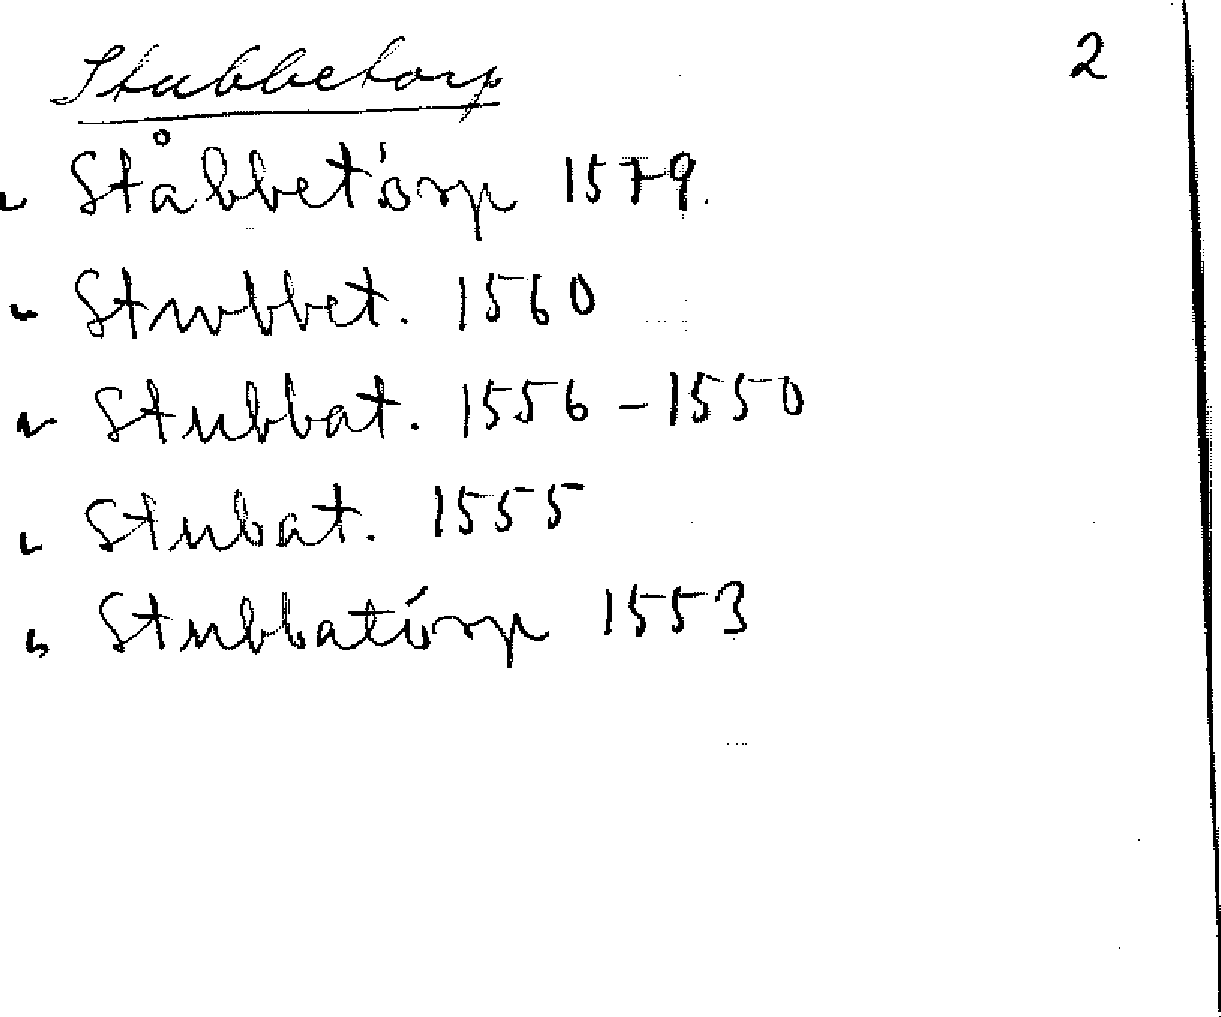 Stubbetorp 2
" Ståbbetórp 1579.
" Strubbet. 1560
" Stubbat. 1556 - 1550
" Stubat. 1555
" Stubbatórp 1553